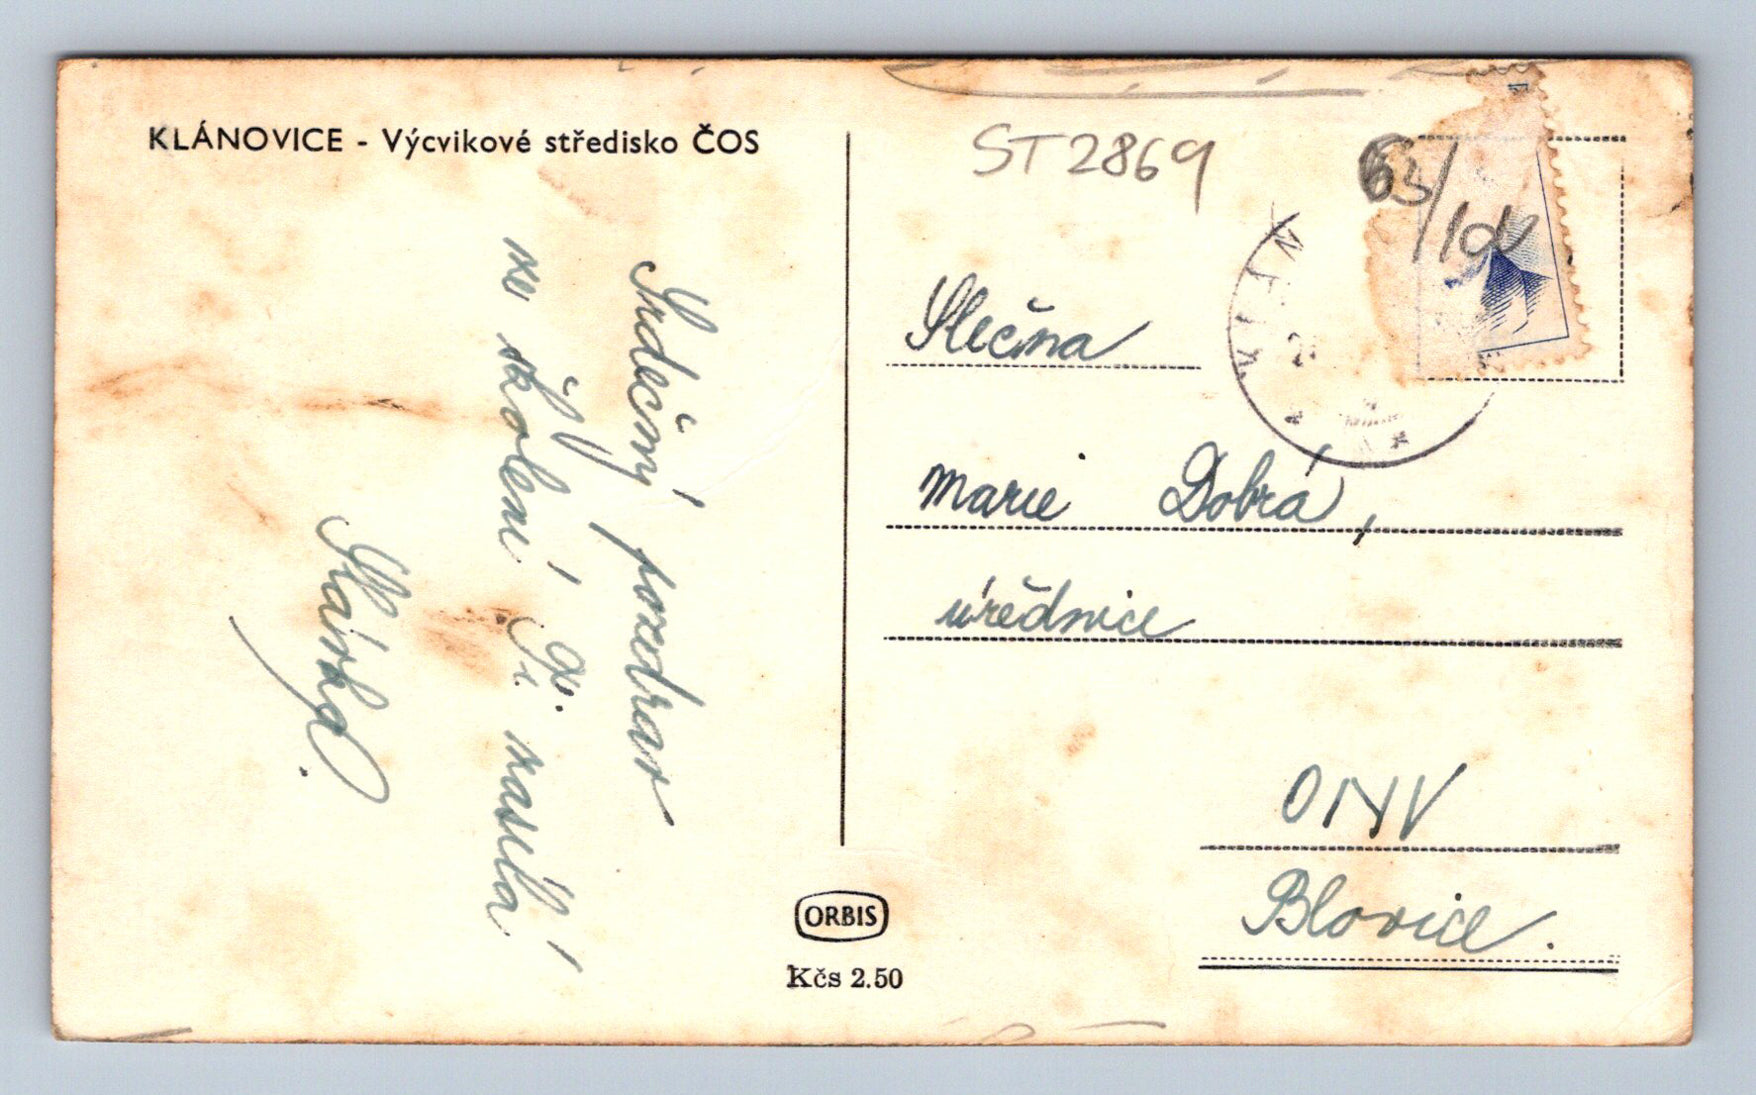 KLÁNOVICE - Výcvikové středisko ČOS
ST2869
63/
Srdečný pozdrav
ze školení
zasílá
Slávka.
Slečna
Marie Dobrá,
úřednice
ONV
Blovice.
ORBIS
Kčs 2.50